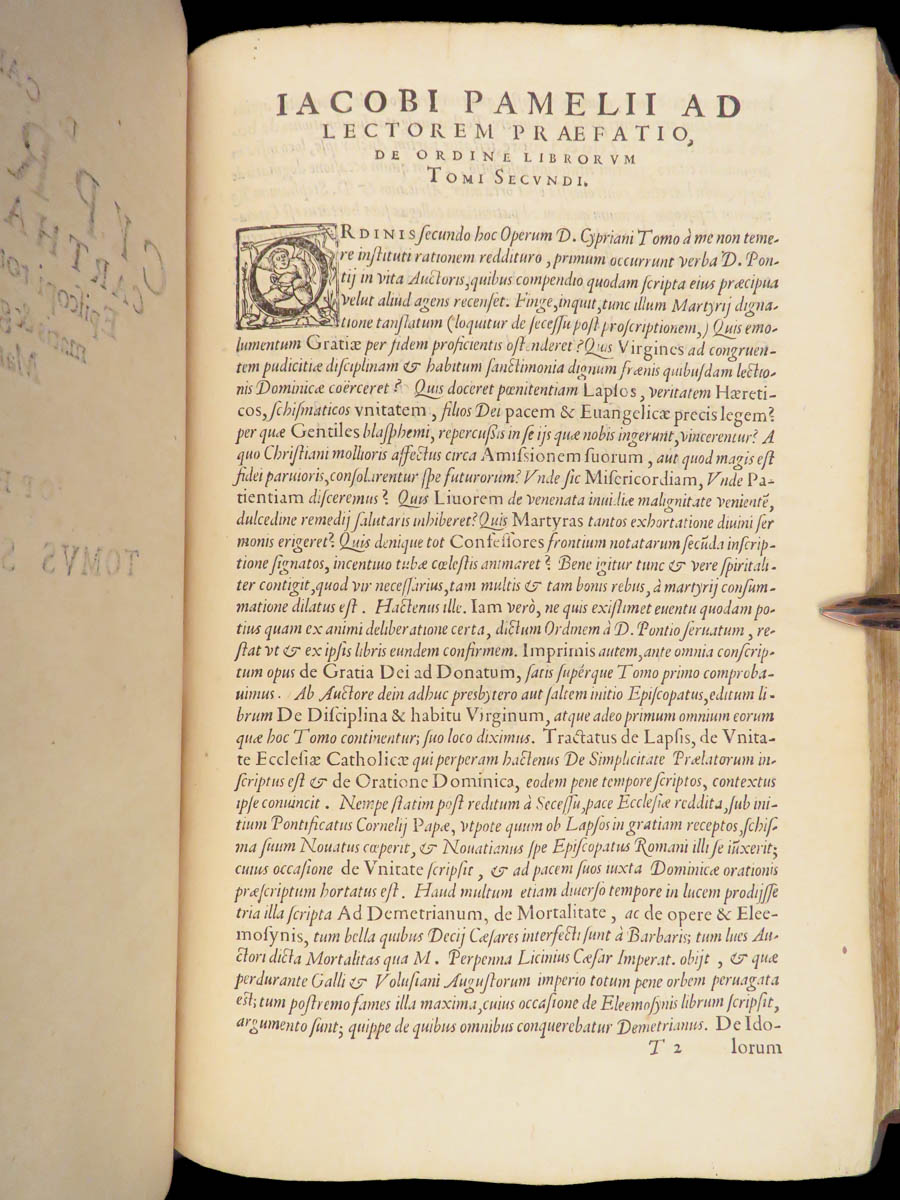 IACOBI PAMELII AD
LECTOREM PRAEFATIO,
DE ORDINE LIBRORVM
TOMI SECVNDI.
ORDINIS ſecundo hoc Operum D. Cypriani Tomo à me non teme-
re inſtituti rationem reddituro, primum occurrunt verba D. Pon-
tij in vita Auctoris, quibus compendio quodam ſcripta eius præcipua
velut aliud agens recenſet. Finge, inquit, tunc illum Martyrij digna-
tione tanſlatum (loquitur de ſeceſſu poſt proſcriptionem,) Quis emo-
lumentum Gratiæ per fidem proficientis oſtenderet? Quis Virgines ad congruen-
tem pudicitiæ diſciplinam & habitum ſanctimonia dignum frænis quibuſdam lectio-
nis Dominicæ coërceret? Quis doceret pœnitentiam Lapſos, veritatem Hæreti-
cos, ſchiſmaticos vnitatem, filios Dei pacem & Euangelicæ precis legem?
per quæ Gentiles blaſphemi, repercuſsis in ſe ijs quæ nobis ingerunt, vincerentur? A
quo Chriſtiani mollioris affectus circa Amiſsionem ſuorum, aut quod magis eſt
fidei paruioris, conſolarentur ſpe futurorum? Vnde ſic Miſericordiam, Vnde Pa-
tientiam diſceremus? Quis Liuorem de venenata inuidiæ malignitate venientẽ,
dulcedine remedij ſalutaris inhiberet? Quis Martyras tantos exhortatione diuini ſer
monis erigeret? Quis denique tot Confeſſores frontium notatarum ſecũda inſcrip-
tione ſignatos, incentiuo tubæ cœleſtis animaret? Bene igitur tunc & vere ſpiritali-
ter contigit, quod vir neceſſarius, tam multis & tam bonis rebus, à martyrij conſum-
matione dilatus eſt. Hactenus ille. Iam verò, ne quis exiſtimet euentu quodam po-
tius quam ex animi deliberatione certa, dictum Ordinem à D. Pontio ſeruatum, re-
ſtat vt & ex ipſis libris eundem confirmem. Imprimis autem, ante omnia conſcrip-
tum opus de Gratia Dei ad Donatum, ſatis ſupérque Tomo primo comproba-
uimus. Ab Auctore dein adhuc presbytero aut ſaltem initio Epiſcopatus, editum li-
brum De Diſciplina & habitu Virginum, atque adeo primum omnium eorum
quæ hoc Tomo continentur; ſuo loco diximus. Tractatus de Lapſis, de Vnita-
te Eccleſiæ Catholicæ qui perperam hactenus De Simplicitate Prælatorum in-
ſcriptus eſt & de Oratione Dominica, eodem pene tempore ſcriptos, contextus
ipſe conuincit. Nempe ſtatim poſt reditum à Seceſſu, pace Eccleſiæ reddita, ſub ini-
tium Pontificatus Cornelij Papæ, vtpote quum ob Lapſos in gratiam receptos, ſchiſ-
ma ſuum Nouatus cœperit, & Nouatianus ſpe Epiſcopatus Romani illi ſe iũxerit;
cuius occaſione de Vnitate ſcripſit, & ad pacem ſuos iuxta Dominicæ orationis
præſcriptum hortatus eſt. Haud multum etiam diuerſo tempore in lucem prodijſſe
tria illa ſcripta Ad Demetrianum, de Mortalitate, ac de opere & Elee-
moſynis, tum bella quibus Decij Cæſares interfecti ſunt à Barbaris; tum lues Au-
ctori dicta Mortalitas qua M. Perpenna Licinius Cæſar Imperat. obijt, & quæ
perdurante Galli & Voluſiani Auguſtorum imperio totum pene orbem peruagata
eſt; tum poſtremo fames illa maxima, cuius occaſione de Eleemoſynis librum ſcripſit,
argumento ſunt; quippe de quibus omnibus conquerebatur Demetrianus. De Ido-
T 2 lorum
TOMVS S